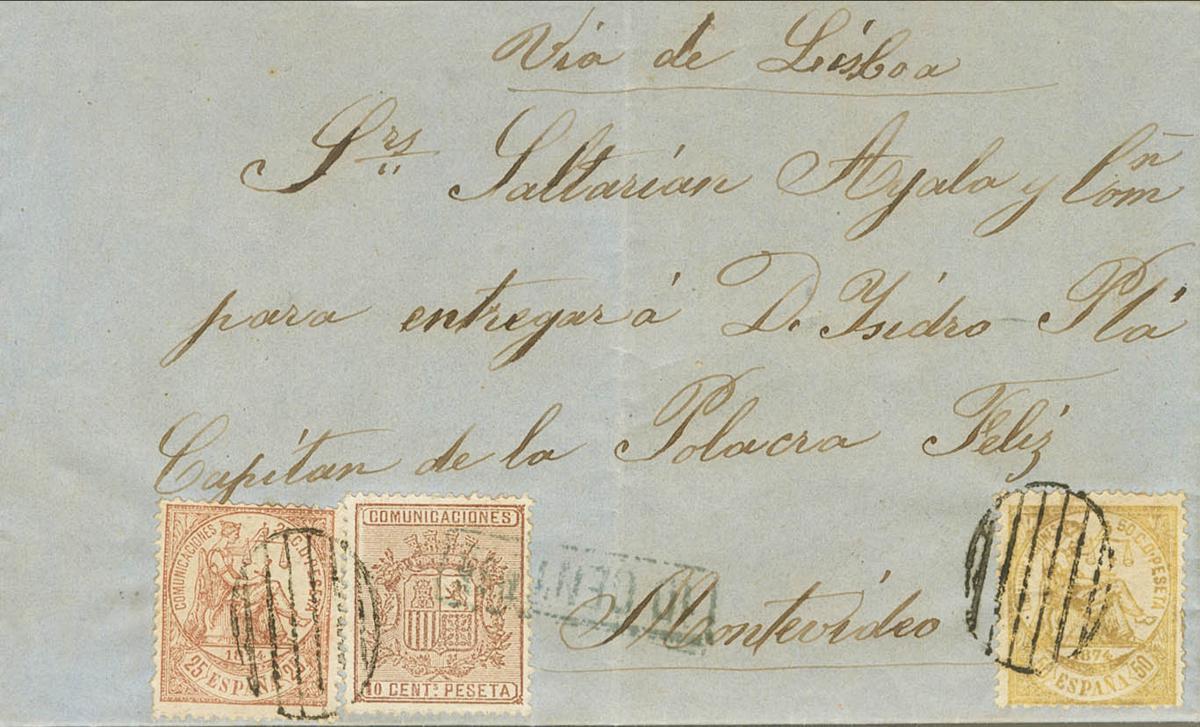 Via de Lisboa
Srs Saltarián Ayala y Comn
para entregar á D. Ysidro Plá
Capitan de la Polacra Feliz
Montevideo
COMUNICACIONES
25 ESPAÑA 25
COMUNICACIONES
10 CENTS PESETA
10 CENT
50 C. DE PESETA
1874
ESPAÑA 50